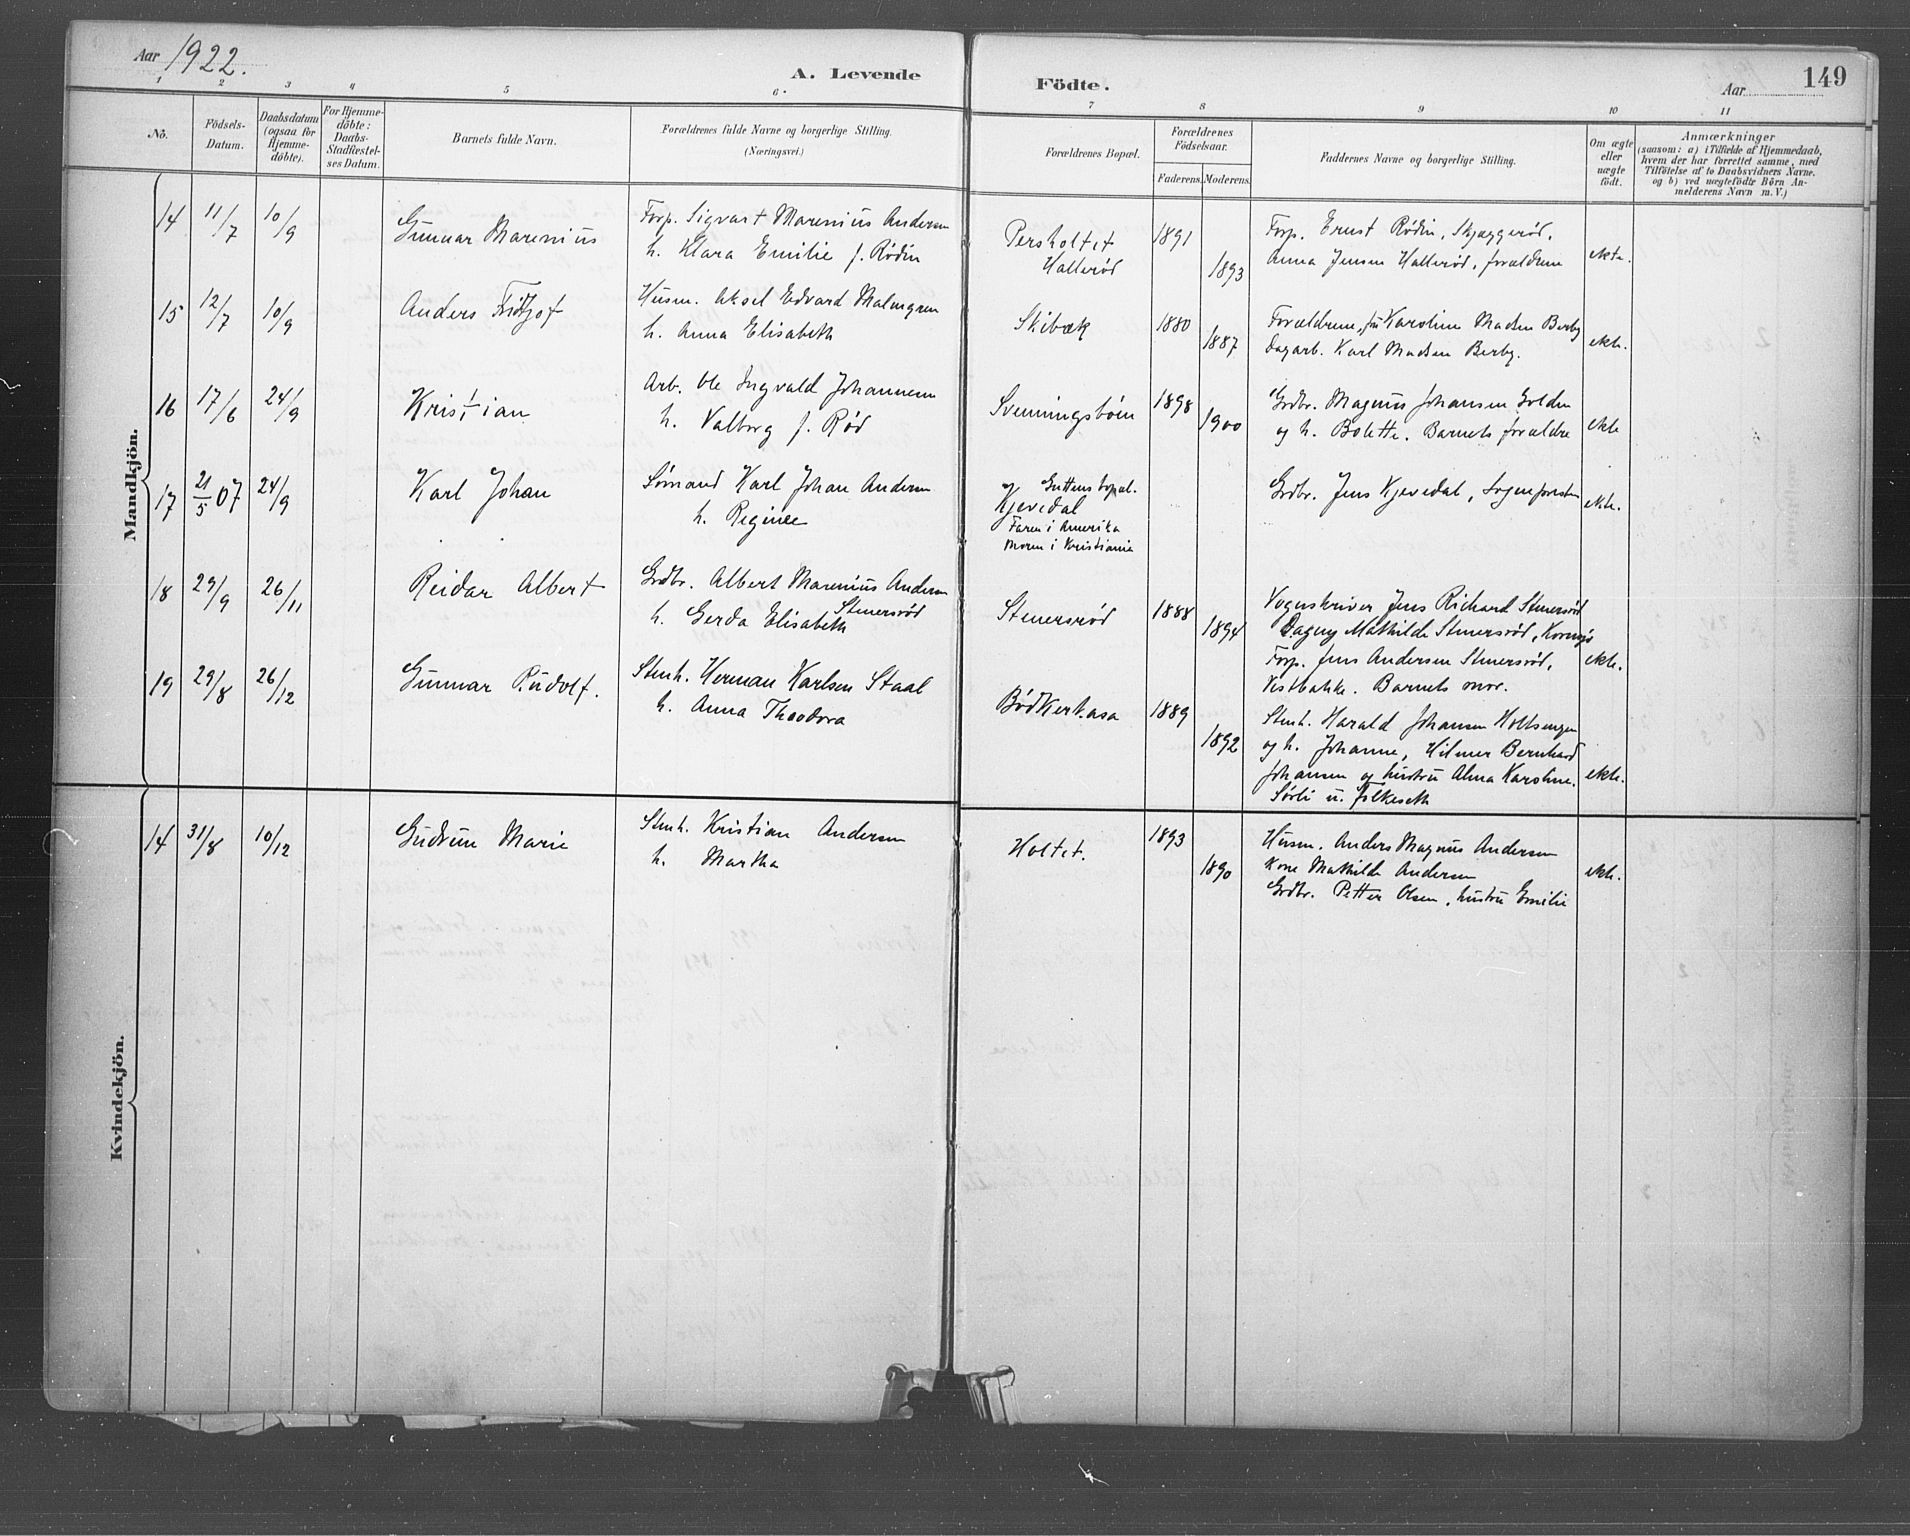 Aar 1922.
A. Levende Födte.
Aar 149
1 2 3 4 5 6 7 8 9 10 11
No.
Födsels-
Datum.
Daabsdatum
(ogsaa for
Hjemme-
döbte).
For Hjemme-
döbte:
Daabs-
Stadfæstel-
ses Datum.
Barnets fulde Navn.
Forældrenes fulde Navne og borgerlige Stilling.
(Næringsvei.)
Forældrenes Bopæl.
Forældrenes
Födselsaar.
Faderens. Moderens.
Faddernes Navne og borgerlige Stilling.
Om ægte
eller
uægte
födt.
Anmærkninger
(saasom: a) i Tilfælde af Hjemmedaab,
hvem der har forrettet samme, med
Tilföielse af to Daabsvidners Navne,
og b) ved uægtefödte Börn An-
melderens Navn m. V.)
Mandkjön.
14 11/7 10/9 Gunnar Marenius
Forp. Sigvart Marenius Andersen
h. Klara Emilie f. Rødin
Persholtet
Hallerød
1891
1893
Forp. Ernst Rødin, Skjæggerød,
Anna Jensen Hallerød, forældrene
ekte.
15 12/7 10/9 Anders Fridtjof
Husm. Aksel Edvard Malmgren
h. Anna Elisabeth
Skibæk
1880
1887
Forældrene, fru Karoline Madsen Berby
Dagarb. Karl Madsen Berby.
ekte.
16 17/6 24/9 Kristian
Arb. Ole Ingvald Johannesen
h. Valborg f. Rød
Svenningsbøen
1898
1900
Grdbr. Magnus Johansen Golden
og h. Bolette. Barnets forældre
ekte
17 21/5 07 24/9 Karl Johan
Sømand Karl Johan Andersen
h. Reginee
Guttens bopæl.
Kjevedal
Faren i Amerika
Moren i Kristiania
Grdbr. Jens Kjevedal, Sognepresten
ekte.
18 29/9 26/11 Reidar Albert
Grdbr. Albert Marenius Andersen
Stenersrød
h. Gerda Elisabeth
Stenersrød
1888
1894
Vognskriver Jens Richard Stenersrød
Dagny Mathilde Stenersrød, Kornsjø
Forp. Jens Andersen Stenersrød,
Vestbakke. Barnets mor.
ekte.
19 29/8 26/12 Gunnar Rudolf.
Stenh. Herman Karlsen Staal
h. Anna Theodora
Bødkerkasa
1889
1892
Stenh. Harald Johansen Holtsengen
og h. Johanne, Hilmer Bernhard
Johansen og hustru Alma Karoline.
Sørli u. folkeseth
ekte.
Kvindekjön.
14 31/8 10/12 Gudrun Marie
Stenh. Kristian Andersen
h. Martha
Holtet.
1893
1890
Husm. Anders Magnus Andersen
Kone Mathilde Andersen
Grdbr. Petter Olsen, hustru Emilie
ekte.